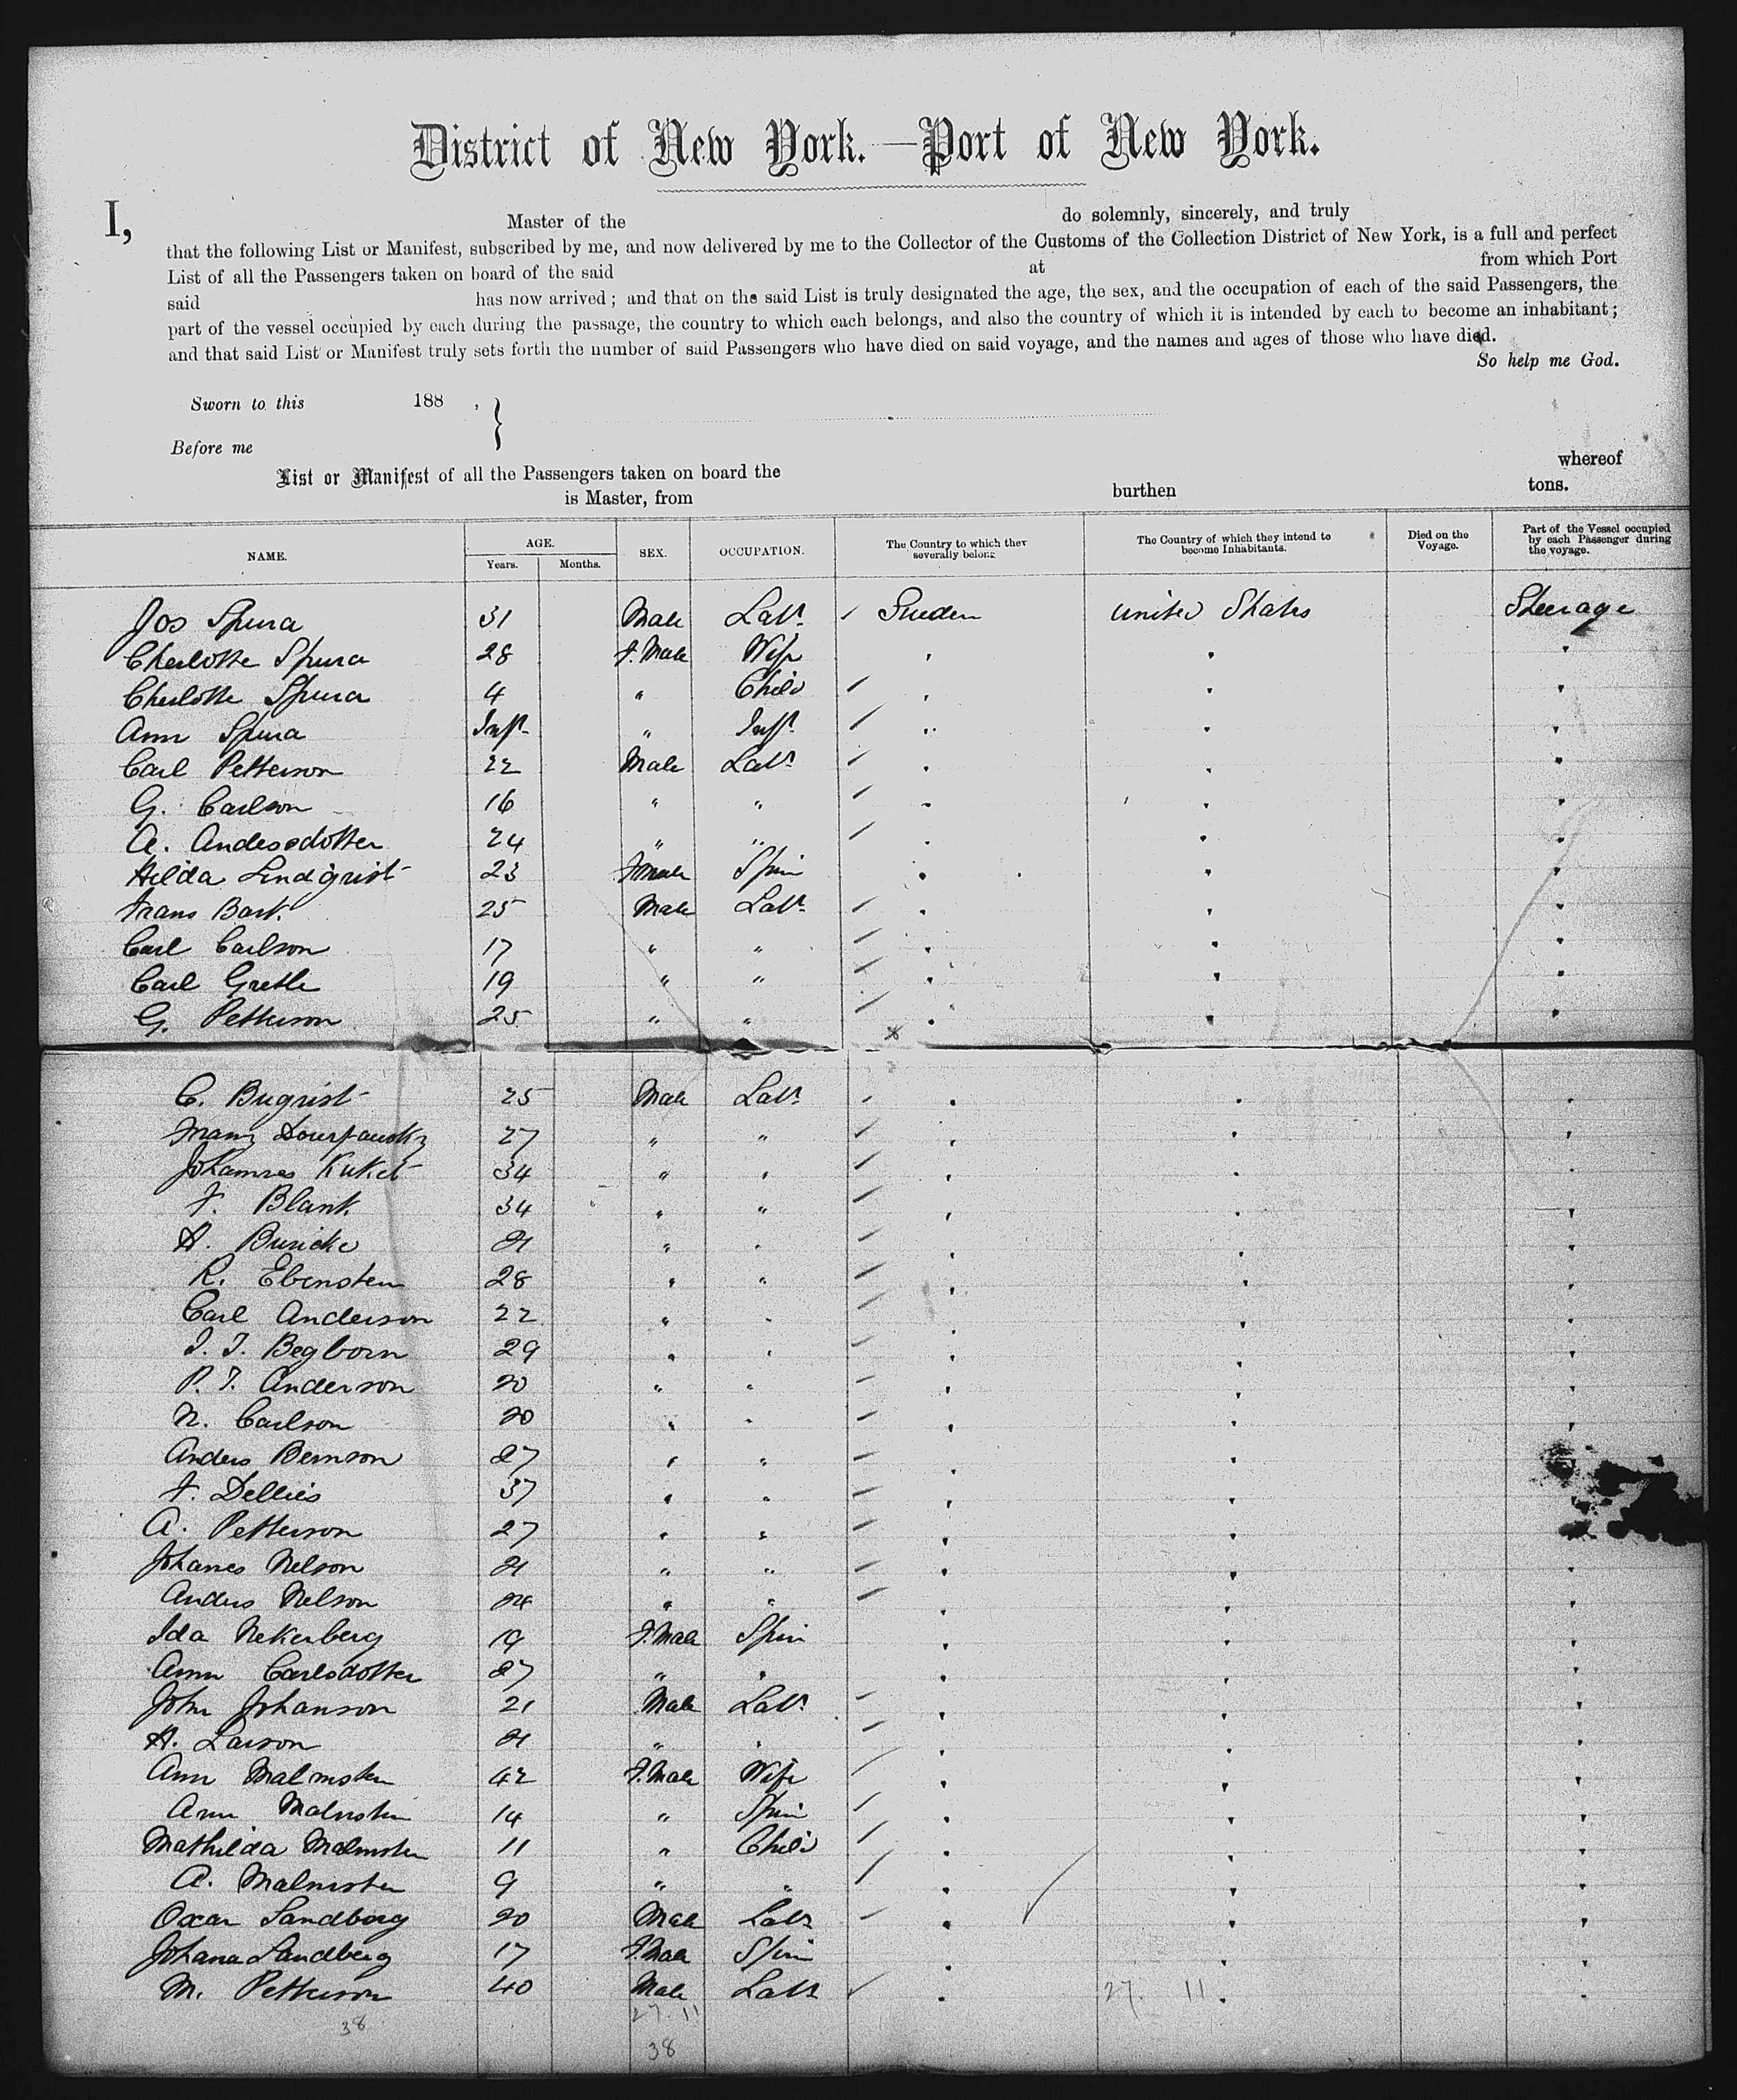 District of New York.—Port of New York.
I, Master of the do solemnly, sincerely, and truly
that the following List or Manifest, subscribed by me, and now delivered by me to the Collector of the Customs of the Collection District of New York, is a full and perfect
List of all the Passengers taken on board of the said at from which Port
said has now arrived; and that on the said List is truly designated the age, the sex, and the occupation of each of the said Passengers, the
part of the vessel occupied by each during the passage, the country to which each belongs, and also the country of which it is intended by each to become an inhabitant;
and that said List or Manifest truly sets forth the number of said Passengers who have died on said voyage, and the names and ages of those who have died.
So help me God.
Sworn to this 188 , }
Before me
List or Manifest of all the Passengers taken on board the whereof
is Master, from burthen tons.
NAME. AGE. Years. Months. SEX. OCCUPATION. The Country to which they severally belong The Country of which they intend to become Inhabitants. Died on the Voyage. Part of the Vessel occupied by each Passenger during the voyage.
Jos Spura 31 Male Labr Sweden United States Steerage
Charlotte Spura 28 F.Male Wife
Charlotte Spura 4 " Child
Ann Spura Inft " Inft
Carl Petterson 22 Male Labr
G. Carlson 16 " "
A. Andersdotter 24 " "
Hilda Lindqrist 23 F.male Spin
Frans Bark 25 Male Labr
Carl Carlson 17 " "
Carl Grethe 19 " "
G. Petterson 25 " "
C. Bugrist 25 Male Labr
Franz 27 " "
Johannes Kuket 34 " "
F. Blank 34 " "
H. Buricke 21 " "
R. Ebenstein 28 " "
Carl Anderson 22 " "
J. J. Begborn 29 " "
P. J. Anderson 20 " "
N. Carlson 20 " "
Anders Bernson 27 " "
F. Dellies 37 " "
A. Petterson 27 " "
Johanes Nelson 21 " "
Anders Nelson 24 " "
Ida Nekerberg 19 F.Male Spin
Ann Carlsdotter 27 " "
John Johanson 21 Male Labr
H. Larson 21 " "
Ann Malmsten 42 F.Male Wife
Ann Malmsten 14 " Spin
Mathilda Malmsten 11 " Child
A. Malmsten 9 " "
Oscar Sandberg 20 Male Labr
Johana Sandberg 17 F.Male Spin
M. Petterson 40 Male Labr 27. 11
38 27.11
38